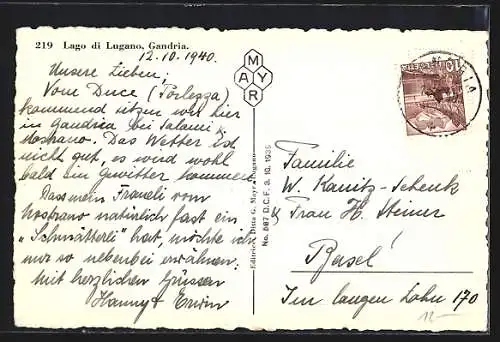 219 Lago di Lugano, Gandria.
12.10.1940.
Unsere Lieben;
Vom Duce (Porlezza)
kommend sitzen wir hier
in Gandria bei Salami &
Nostrano. Das Wetter ist
nicht gut, es wird wohl
bald ein Gewitter kommen.
Dass mein Fraueli vom
Nostrano natürlich fast ein
„Schwätterli" hat, möchte ich
nur so nebenbei erwähnen.
Mit herzlichen Grüssen
Hanny & Erwin
MAYR
Editrice Ditta G. Mayr, Lugano
No. 867 D.C.F. 3. 10. 1936
HELVETIA
Familie
W. Kanitz-Schenk
& Frau H. Steiner
Basel!
Im langen Lohn 170
12-